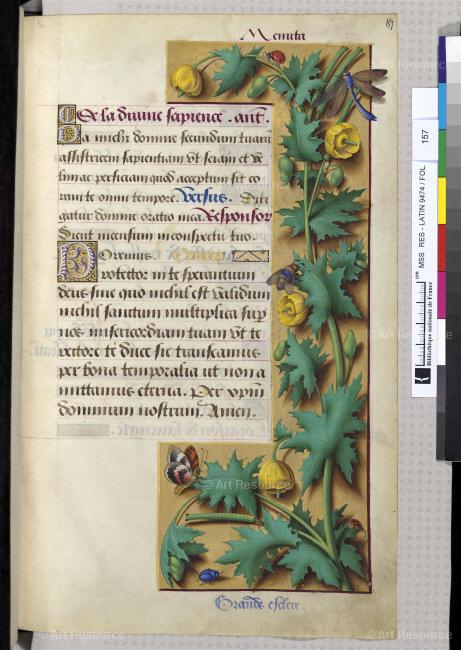 Menuta
157
De la divine sapience. ant.
Da michi domine secundum tuam
assistricem sapientiam vt sciam et ve
lim ac perficiam quod acceptum sit co
ram te omni tempore. Versus. Diri
gatur domine oratio mea Responsor
Sicut incensum in conspectu tuo.
Oremus. Oraison
Protector in te sperantium
deus sine quo nichil est validum
nichil sanctum multiplica sup
nos misericordiam tuam vt te
rectore te duce sic transeamus
per bona temporalia ut non a
mittamus eterna. Per xpm
dominum nostrum. Amen.
Grande esclere.
157
MSS RES - LATIN 9474 / FOL.
Bibliothèque nationale de France
© Art Resource